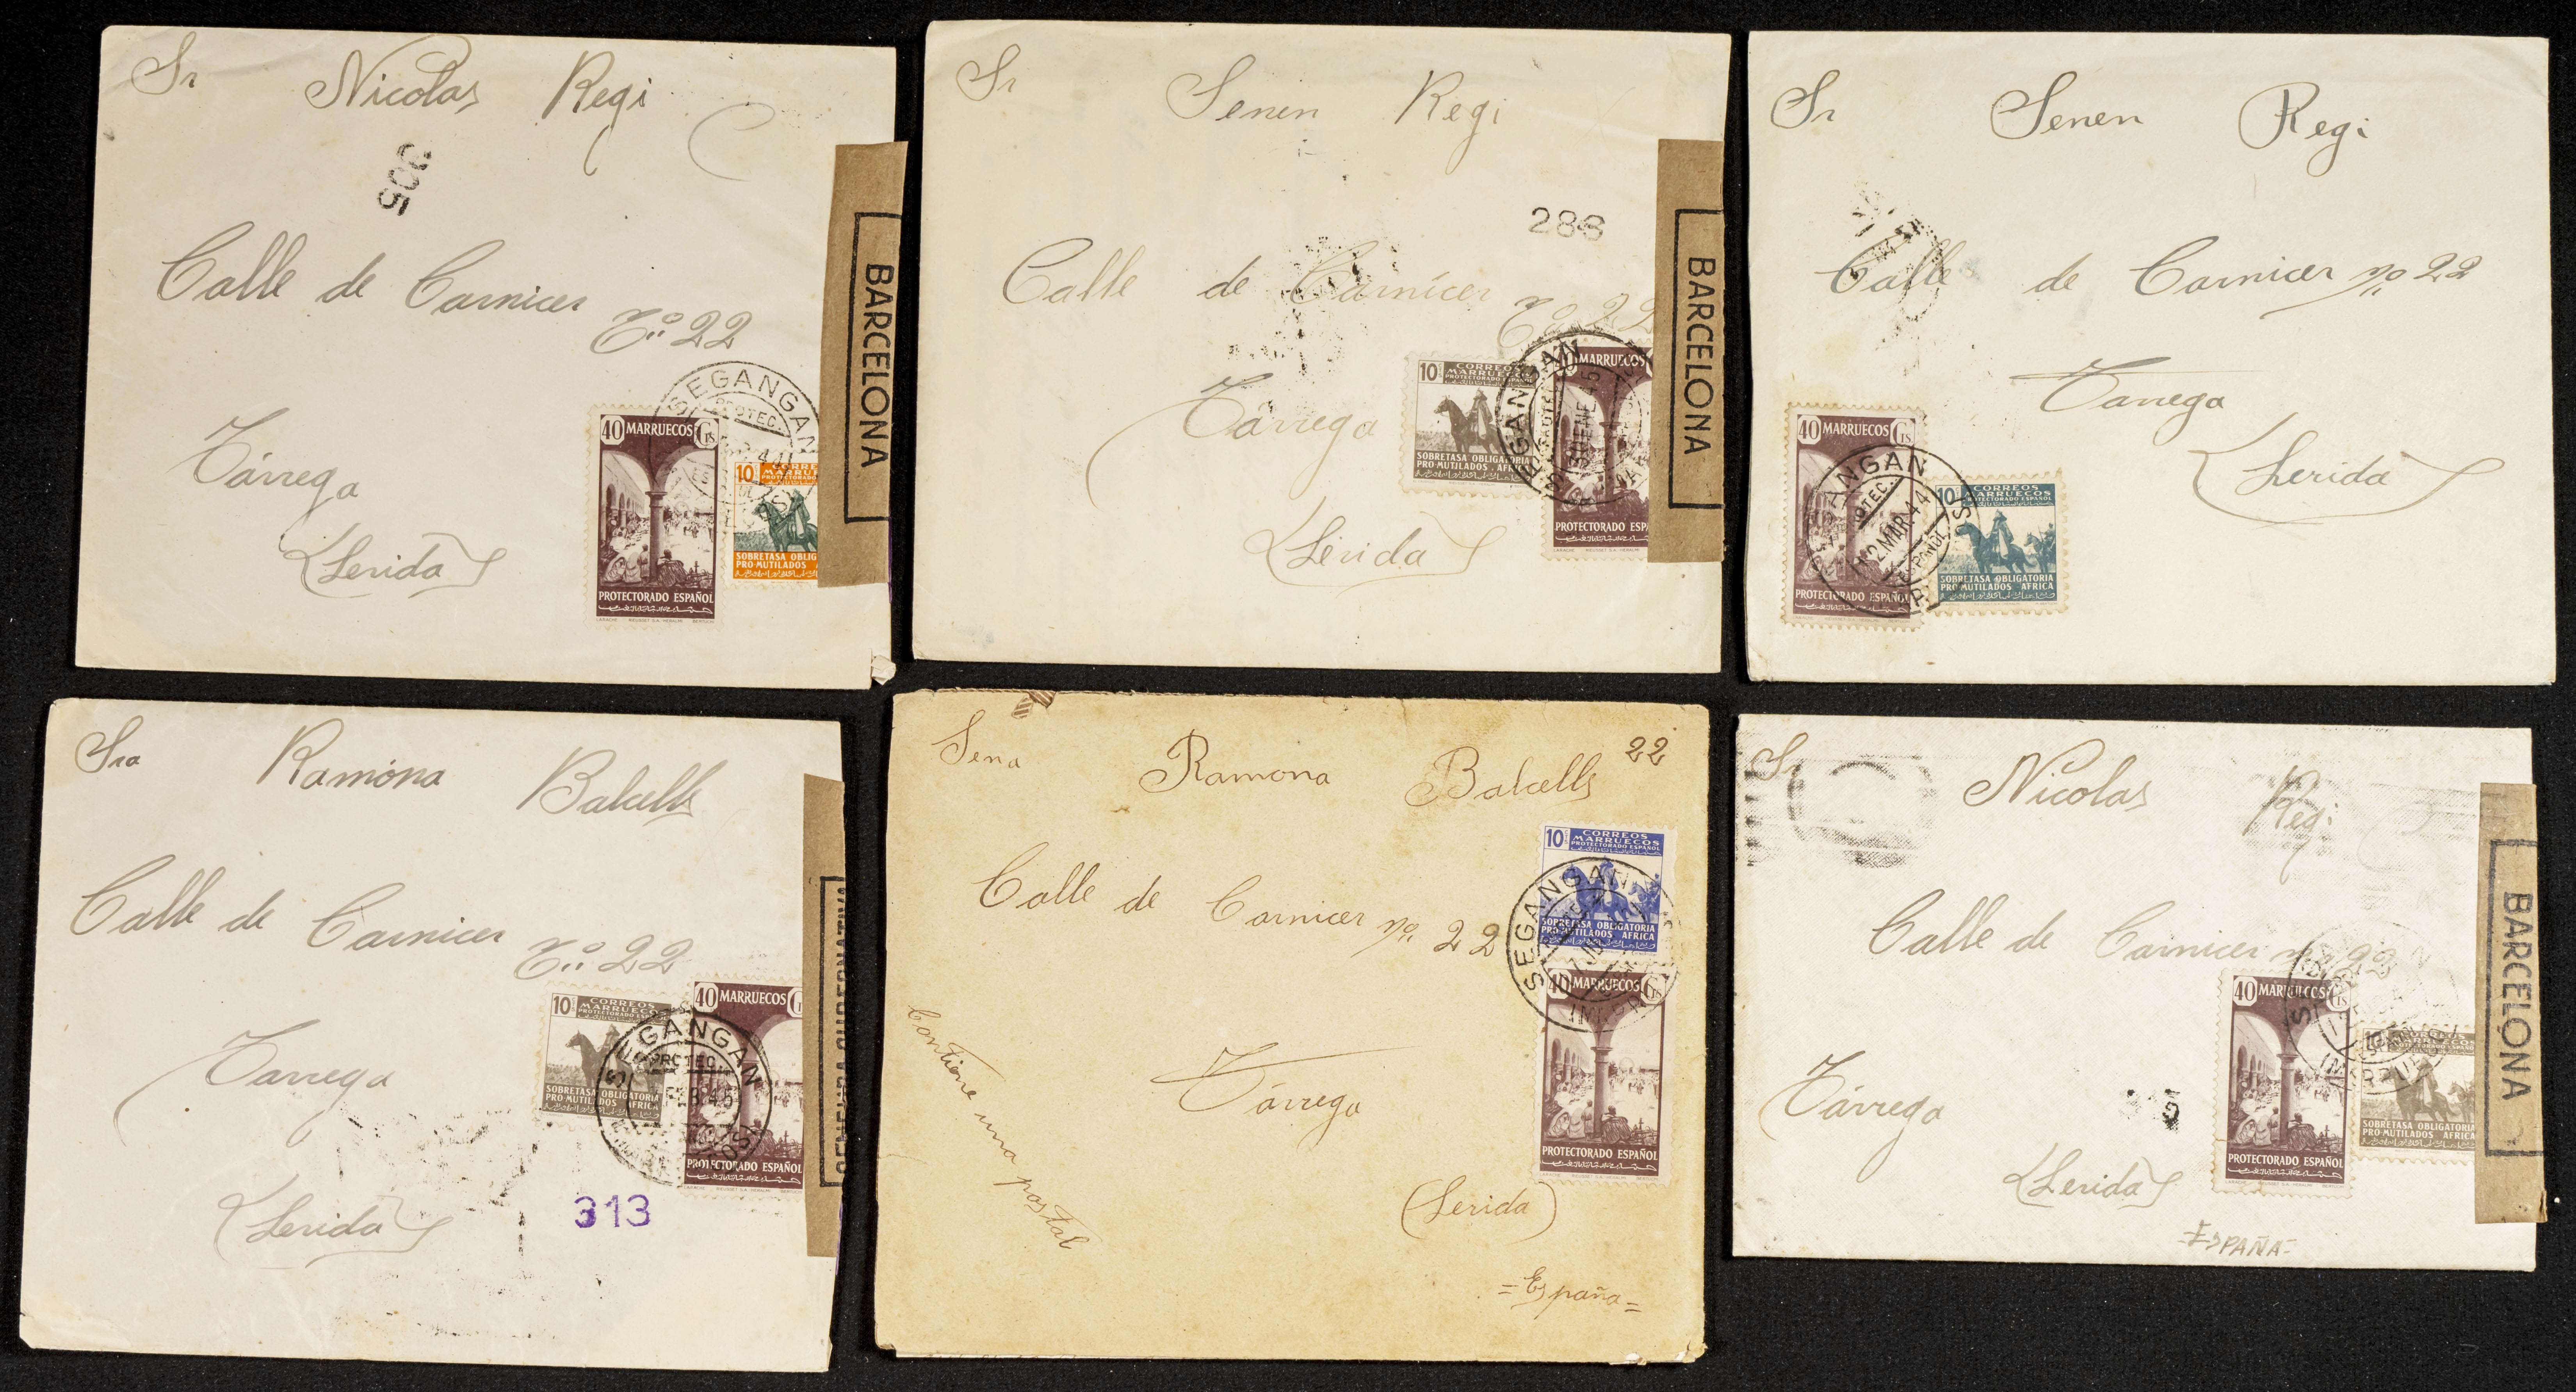 Sr Nicolas Regi
305
Calle de Carnicer
nº 22
Tárrega
(Lerida)
SEGANGAN
PROTEC.
40 MARRUECOS Cts
PROTECTORADO ESPAÑOL
10
SOBRETASA OBLIG
PRO-MUTILADOS A
BARCELONA
Sr Senen Regi
286
Calle de Carnicer
nº 22
Tárrega
(Lérida)
10 CORREOS
MARRUECOS
PROTECTORADO ESPAÑOL
SOBRETASA OBLIGATORIA
PRO-MUTILADOS AFRICA
MARRUECOS
PROTECTORADO ESPA
ENE 45
BARCELONA
Sr Senen Regi
Calle de Carnicer nº 22
Tarrega
(Lerida)
40 MARRUECOS Cts
PROTECTORADO ESPAÑOL
GANGAN
2 MAR 44
10 CORREOS
MARRUECOS
PROTECTORADO ESPAÑOL
SOBRETASA OBLIGATORIA
PRO-MUTILADOS AFRICA
Sra Ramóna Balcells
Calle de Carnicer
nº 22
Tarrega
(Lerida)
10 CORREOS
MARRUECOS
PROTECTORADO ESPAÑOL
SOBRETASA OBLIGATORIA
PRO-MUTILADOS AFRICA
GANGAN
PROTEC.
40 MARRUECOS
PROTECTORADO ESPAÑOL
313
Sena Ramona Balcells 22
Calle de Carnicer nº 22
Tárrega
(Lerida)
=España=
Contiene una postal
10 CORREOS
MARRUECOS
PROTECTORADO ESPAÑOL
SOBRETASA OBLIGATORIA
PRO-MUTILADOS AFRICA
SEGANGAN
40 MARRUECOS Cts
PROTECTORADO ESPAÑOL
Sr Nicolas Regi
Calle de Carnicer nº 22
Tárrega
(Lerida)
=ESPAÑA=
40 MARRUECOS Cts
PROTECTORADO ESPAÑOL
10
SOBRETASA OBLIGATORIA
PRO-MUTILADOS AFRICA
BARCELONA